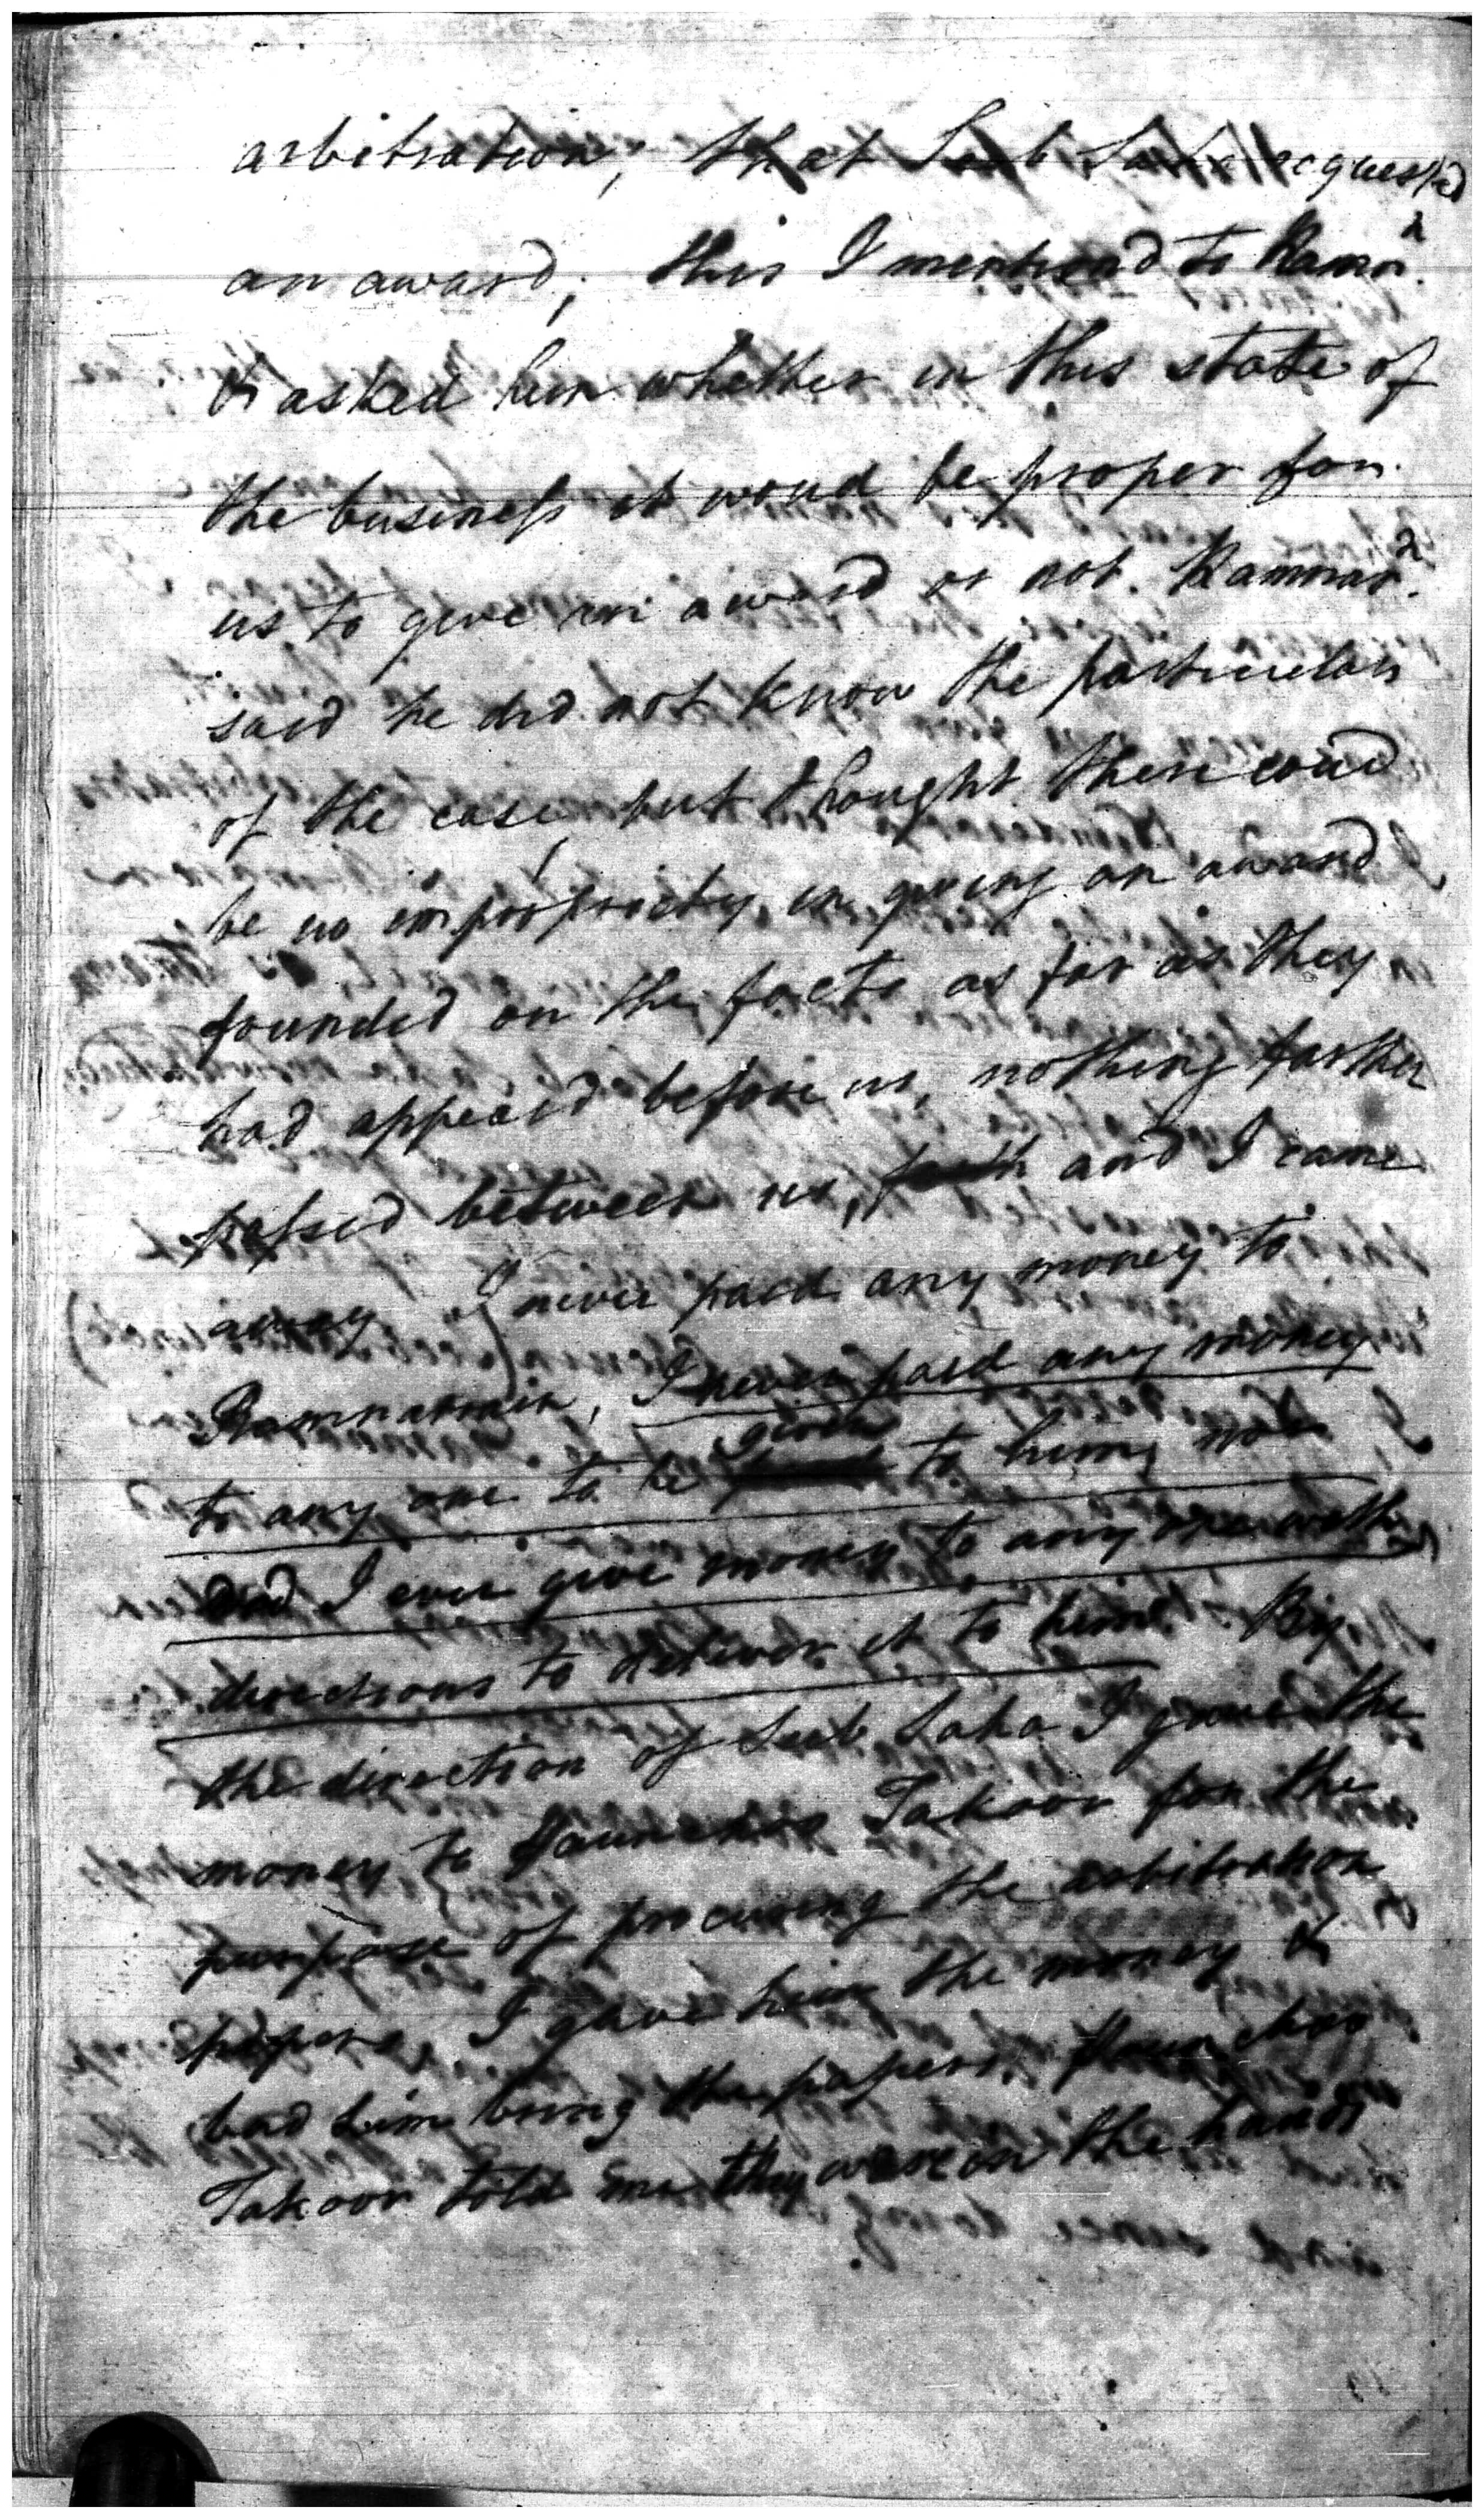 arbitration; that Seeb Saha requested
an award; this I mentioned to Ramn.
& asked him whether in this state of
the business it woud be proper for
us to give an award or not. Ramnar.
said he did not know the particulars
of the case, but thought there coud
be no impropriety in giving an award
founded on the facts as far as they
had appeard before us, nothing farther
passed between us, and I came
away I never paid any money to
Ramnarain, I never paid any money
to any one to be given to him, nor
did I ever give money to any one with
directions to deliver it to him. By
the direction of Seeb Saha I gave the
money to Takoor for the
purpose of procuring the arbitration
papers, I gave him the money &
bad him bring the papers.
Takoor told me they were in the hands